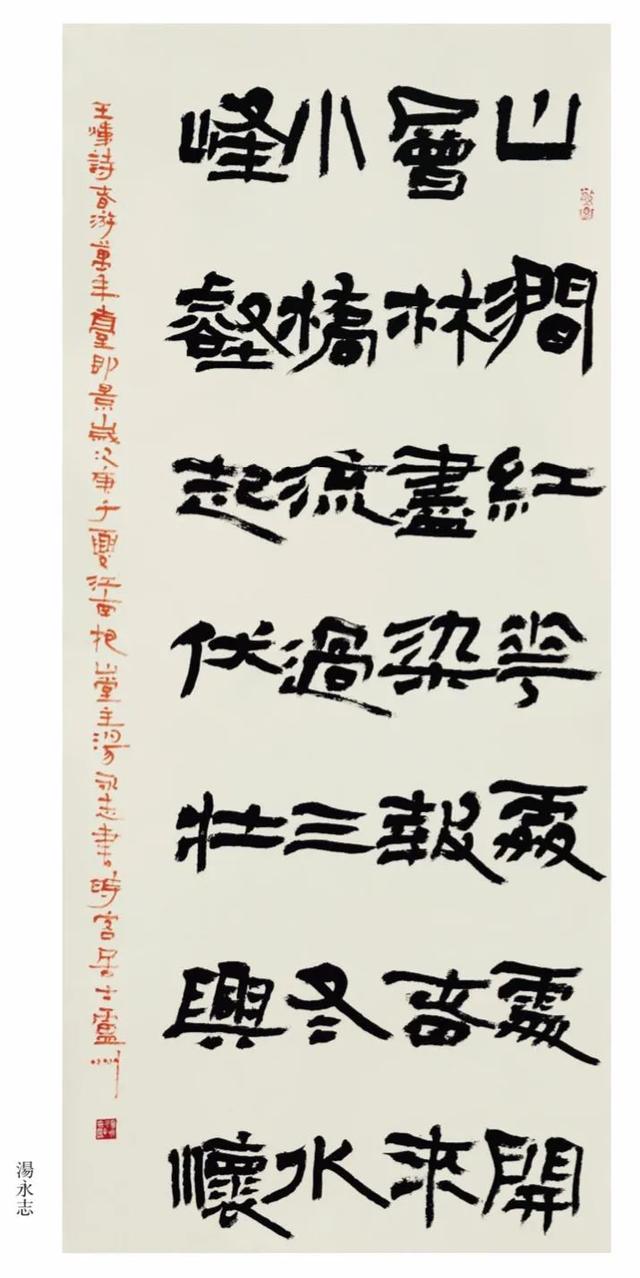 山澗紅花處處開
層林盡染報春來
小橋流過三冬水
峰壑起伏壯興懷
王煉詩春游萬年臺即景歲次庚子夏江南抱山堂主湯永志書時客居古盧州
湯永志